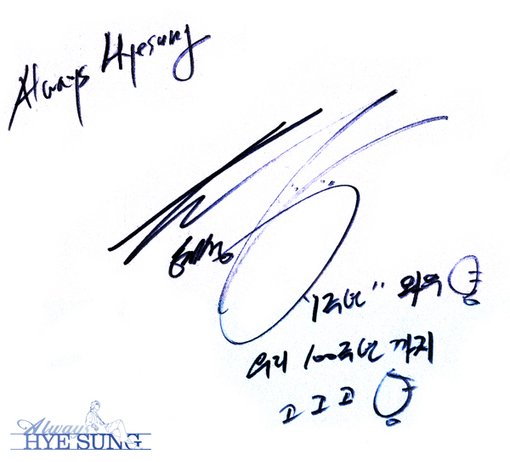 Always Hyesung
"1주년" 와우
우리 100주년까지
고고고
Always
HYE SUNG